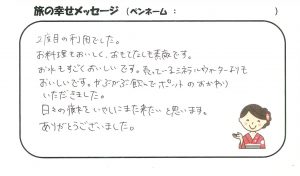 旅の幸せメッセージ （ペンネーム： ）
2度目の利用でした。
お料理もおいしく、おもてなしも素敵です。
お水もすごくおいしいです。売っているミネラルウォーターよりも
おいしいです。がぶがぶ飲んでポットのおかわり
いただきました。
日々の疲れをいやしにまた来たいと思います。
ありがとうございました。